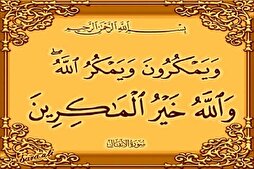 بِسْمِ اللَّهِ الرَّحْمَٰنِ الرَّحِيمِ
وَيَمْكُرُونَ وَيَمْكُرُ اللَّهُ ۖ
وَاللَّهُ خَيْرُ الْمَاكِرِينَ
سورة الأنفال